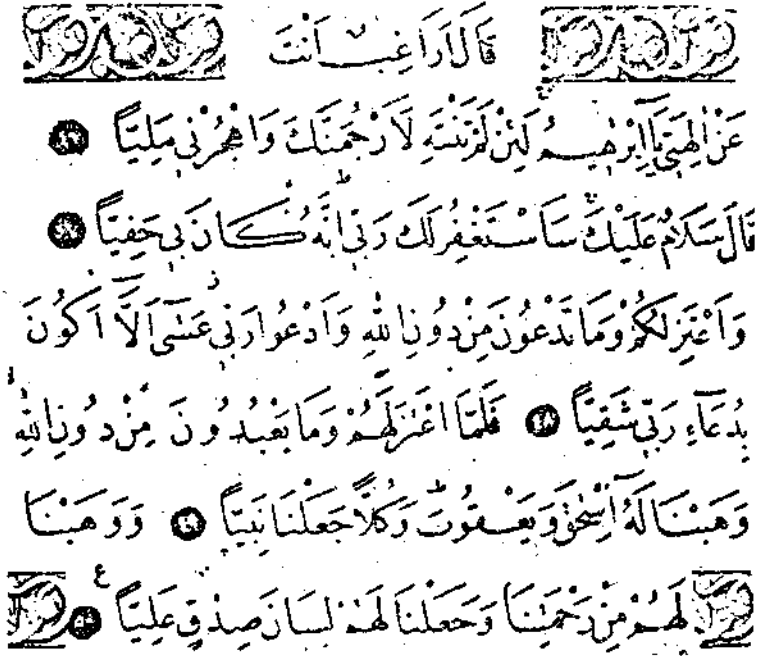 قَالَ اَرَاغِبٌ اَنْتَ
عَنْ اٰلِهَتٖي يَٓا اِبْرٰهٖيمُ لَئِنْ لَمْ تَنْتَهِ لَاَرْجُمَنَّكَ وَاهْجُرْنٖي مَلِيًّا
قَالَ سَلَامٌ عَلَيْكَ سَاَسْتَغْفِرُ لَكَ رَبّٖي اِنَّهُ كَانَ بٖي حَفِيًّا
وَاَعْتَزِلُكُمْ وَمَا تَدْعُونَ مِنْ دُونِ اللّٰهِ وَاَدْعُوا رَبّٖي عَسٰٓى اَلَّٓا اَكُونَ
بِدُعَٓاءِ رَبّٖي شَقِيًّا ﴿٤٨﴾ فَلَمَّا اعْتَزَلَهُمْ وَمَا يَعْبُدُونَ مِنْ دُونِ اللّٰهِ
وَهَبْنَا لَهُٓ اِسْحٰقَ وَيَعْقُوبَ وَكُلًّا جَعَلْنَا نَبِيًّا ﴿٤٩﴾ وَوَهَبْنَا
لَهُمْ مِنْ رَحْمَتِنَا وَجَعَلْنَا لَهُمْ لِسَانَ صِدْقٍ عَلِيًّا ﴿٥٠﴾ ع